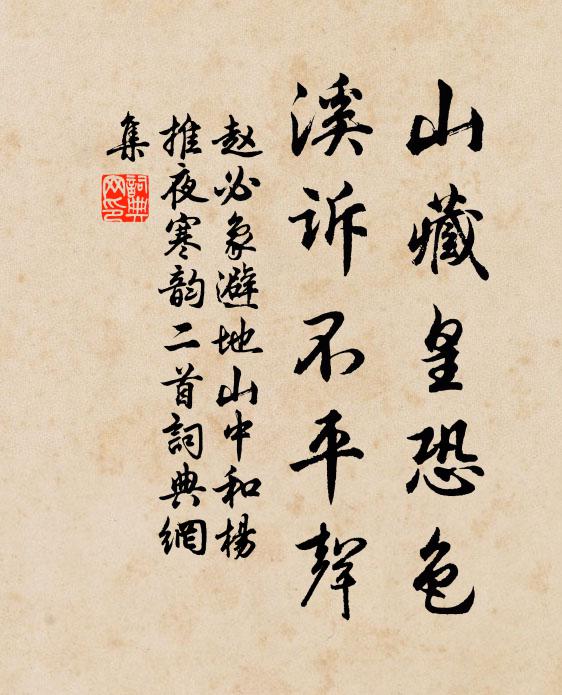 山藏皇恐色
溪诉不平聲
赵必象避地山中和楊
推夜寒韵二首詞典網
集
詞典
网印